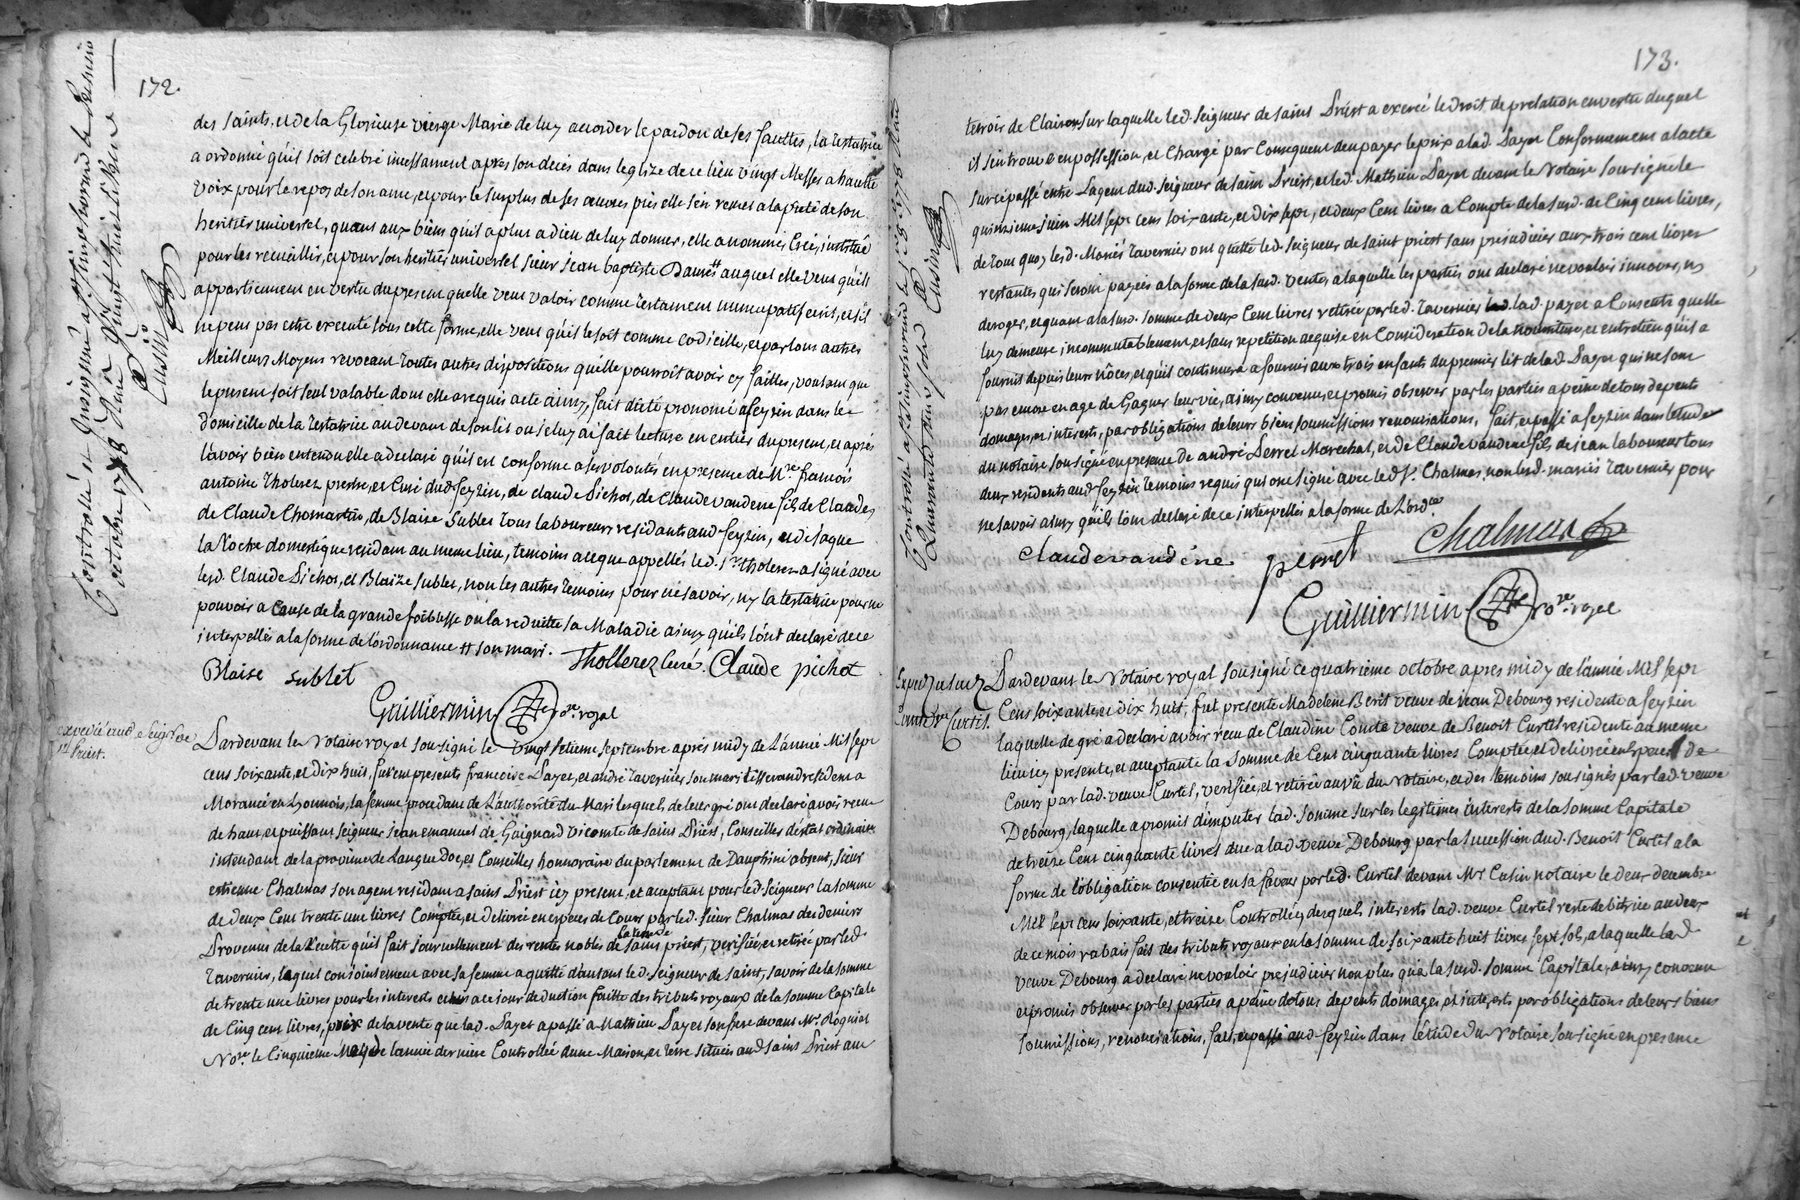 172.
des saints, et de la Glorieuse vierge Marie de luy accorder le pardon de ses fauttes, la testatrice
a ordonné qu'il soit celebré incessament apres son decés dans leglize de ce lieu vingt Messes a hautte
voix pour le repos de son ame, et pour le surplus de ses œuvres pies elle s'en remet a la pieté de son
heritier universel, quant aux biens qu'il a plu a dieu de luy donner, elle a nommé, Creé, institué
pour les recueillir, et pour son heritier universel sieur jean baptiste Damés # auquel elle veut qu'ils
appartiennent en vertu du present quelle veut valoir comme testament nuncupatif ecrit, et s'il
ne peut pas estre executé sous cette forme, elle veut qu'il le soit comme codicille, et par tous autres
Meilleurs Moyens revocant toutes autres dispositions qu'elle pourroit avoir cy faittes, voulant que
le present soit seul valable dont elle a requis acte ainsy, fait dicté prononcé a feyzin dans le
domicille de la testatrice au devant de son lit ou je luy ai fait lecture en entier du present, et aprés
l'avoir bien entendu elle a declaré qu'il est conforme a ses volontés en presence de Mre francois
antoine Tholerez prestre, et Curé dud. feyzin, de claude Pichot, de Claude vandenne fils de Claude,
de Claude Chomartin, de Blaise Sublet tous laboureurs residants aud. feyzin, et d'isaque
la Roche domestique residant au meme lieu, temoins aceque appellés led. sr. tholerez a signé avec
lesd. Claude Pichot, et Blaize Sublet, non les autres temoins pour ne savoir, ny la testatrice pour ne
pouvoir a Cause de la grande foiblesse ou la reduitte sa Maladie ainsy qu'ils l'ont declaré de ce
interpellés a la forme de l'ordonnance # son mari.
Thollerez Curé. Claude pichot
Blaise sublet
Guilliermin Nore. royal
Controllé et
octobre 1778
Cusin
expedié aud. Seigr. de
st. Priest.
Pardevant le Notaire royal soussigné le vingt setieme septembre aprés midy de L'année Mil sept
cens soixante, et dix huit, furent presents francoise Payet, et andré tavernier son mari tisserand resident a
Morancé en Lyonnois, la femme procedant de L'authorité du Mari lesquels de leur gré ont declaré avoir recu
de haut, et puissant seigneur jean emanuel de Guignard vicomte de saint Priest, Conseiller d'éstat ordinaire
intendant de la province de Langue Doc, et Conseiller honnoraire du parlement de Dauphiné absent, sieur
estienne Chalmas son agent resident a saint Priest icy present, et acceptant pour led. Seigneur la somme
de deux Cent trente une livres Comptée, et Delivrée en especes de Cours par led. sieur Chalmas des deniers
Provenus de la Recette qu'il fait journellement des rentes nobles de la terre de saint priest, verifiée, et retirée par led.
Tavernier, laquel conjointement avec sa femme a quitté d'autant led. seigneur de saint, savoir de la somme
de trente une livres pour les interests echus a ce jour deduction faitte des tributs royaux de la somme Capitale
de Cinq cent livres, prix de la vente que lad. Payet a passé a Mathieu Payet son frere devant Mr. Roquiat
Nore. le Cinquieme May de lannée derniere Controllée dune Maison, et terre situés aud. saint Priest au
173.
terroir de Clairon sur laquelle led. Seigneur de saint Priest a exercé le droit de prelation en vertu duquel
il s'en trouve en possession, et Chargé par Consequent d'en payer le prix a lad. Payet Conformement a l'acte
sur ce passé entre L'agent dud. Seigneur de saint Priest, et led. Mathieu Payet devant le Notaire soussigné le
quinzieme juin Mil sept cens soixante, et dix sept, et deux Cent livres a Compte de la susd. de Cinq cent livres,
de tout quoy lesd. Mariés Tavernier ont quitté led. Seigneur de saint priest sans prejudicier aux trois cent livres
restantes qui seront payées a la forme de la susd. vente, a laquelle les parties ont declaré ne vouloir innover, ny
deroger, et quant a la susd. somme de deux Cent livres retirée par led. Tavernier lad. payet a Consenti quelle
luy demeure incommutablement et sans repetition acquise en Consideration de la nourriture, et entretien qu'il a
fourni depuis leurs nôces, et qu'il continuera a fournir aux trois enfants du premier lit de lad. Payet qui ne sont
pas encore en age de Gagner leur vie, ainsy convenu, et promis observer par les parties a peine de tous depents
domages, et interests, par obligations de leurs biens soumissions renonciations, fait, et passé a feyzin dans l'etude
du notaire soussigné en presence de andré Perret Marechal, et de Claude vandene fils de jean laboureur tous
deux residents aud. feyzin temoins requis qui ont signé avec led. sr. Chalmas, non lesd. mariés Tavernier pour
ne savoir ainsy qu'ils l'ont declaré de ce interpellés a la forme de L'ordce.
Claude vandéne perret Chalmas
Guilliermin Nore. royal
Cusin
Pardevant le Notaire royal soussigné ce quatrieme octobre aprés midy de l'année Mil sept
Cens soixante, et dix huit, fut presente Madeleine Berit veuve de jean Debourg residente a feyzin
laquelle de gré a declaré avoir recu de Claudine Comte veuve de Benoit Curtil residente au meme
lieu icy presente, et acceptante la somme de Cent cinquante livres Comptée et delivrée en Especes de
Cours par lad. veuve Curtil, verifiée, et retirée au vû du notaire, et des temoins soussignés par lad. veuve
Debourg, laquelle a promis d'imputer lad. somme sur les legitimes interests de la somme Capitale
de treize Cent cinquante livres due a lad. veuve Debourg par la succession dud. Benoit Curtil a la
forme de l'obligation consentie en sa faveur par led. Curtil devant Mr Cusin notaire le deux decembre
Mil sept cens soixante, et treize Controllée, desquels interests lad. veuve Curtil reste debitrice au deux
de ce mois rabais fait des tributs royaux en la somme de soixante huit livres sept sols, a laquelle lad.
veuve Debourg a declaré ne vouloir prejudicier non plus qu'a la susd. somme Capitale, ainsy convenu
et promis observer par les parties a peine de tous depents domages, et interests par obligations de leurs biens
soumissions, renonciations, fait, et passé aud. feyzin dans l'etude du Notaire soussigné en presence